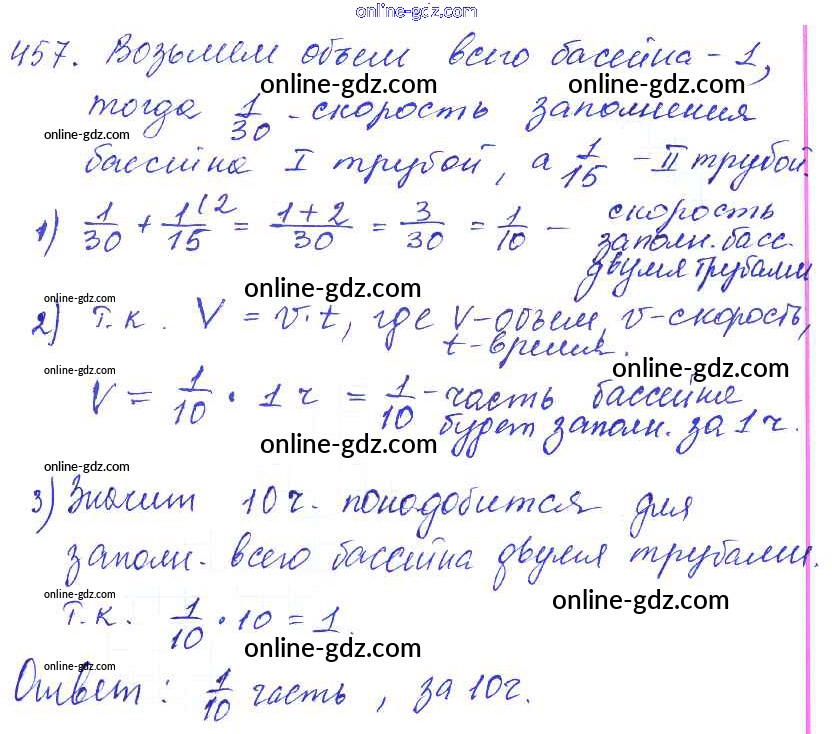 online-gdz.com
457. Возьмем объем всего басейна - 1,
online-gdz.com
online-gdz.com
тогда 1/30 - скорость заполнения
online-gdz.com
online-gdz.com
бассейна I трубой, а 1/15 - II трубой.
online-gdz.com
1) 1/30 + 1(2/15 = 1+2/30 = 3/30 = 1/10 - скорость
заполн. басс.
двумя трубами
online-gdz.com
online-gdz.com
online-gdz.com
2) Т.к. V = v·t, где V-объем, v-скорость,
t-время.
online-gdz.com
online-gdz.com
V = 1/10 · 1 ч = 1/10 - часть бассейна
будет заполн. за 1 ч.
online-gdz.com
online-gdz.com
3) Значит 10 ч. понадобится для
заполн. всего бассейна двумя трубами.
online-gdz.com
online-gdz.com
Т.к. 1/10 · 10 = 1.
online-gdz.com
online-gdz.com
Ответ: 1/10 часть, за 10 ч.